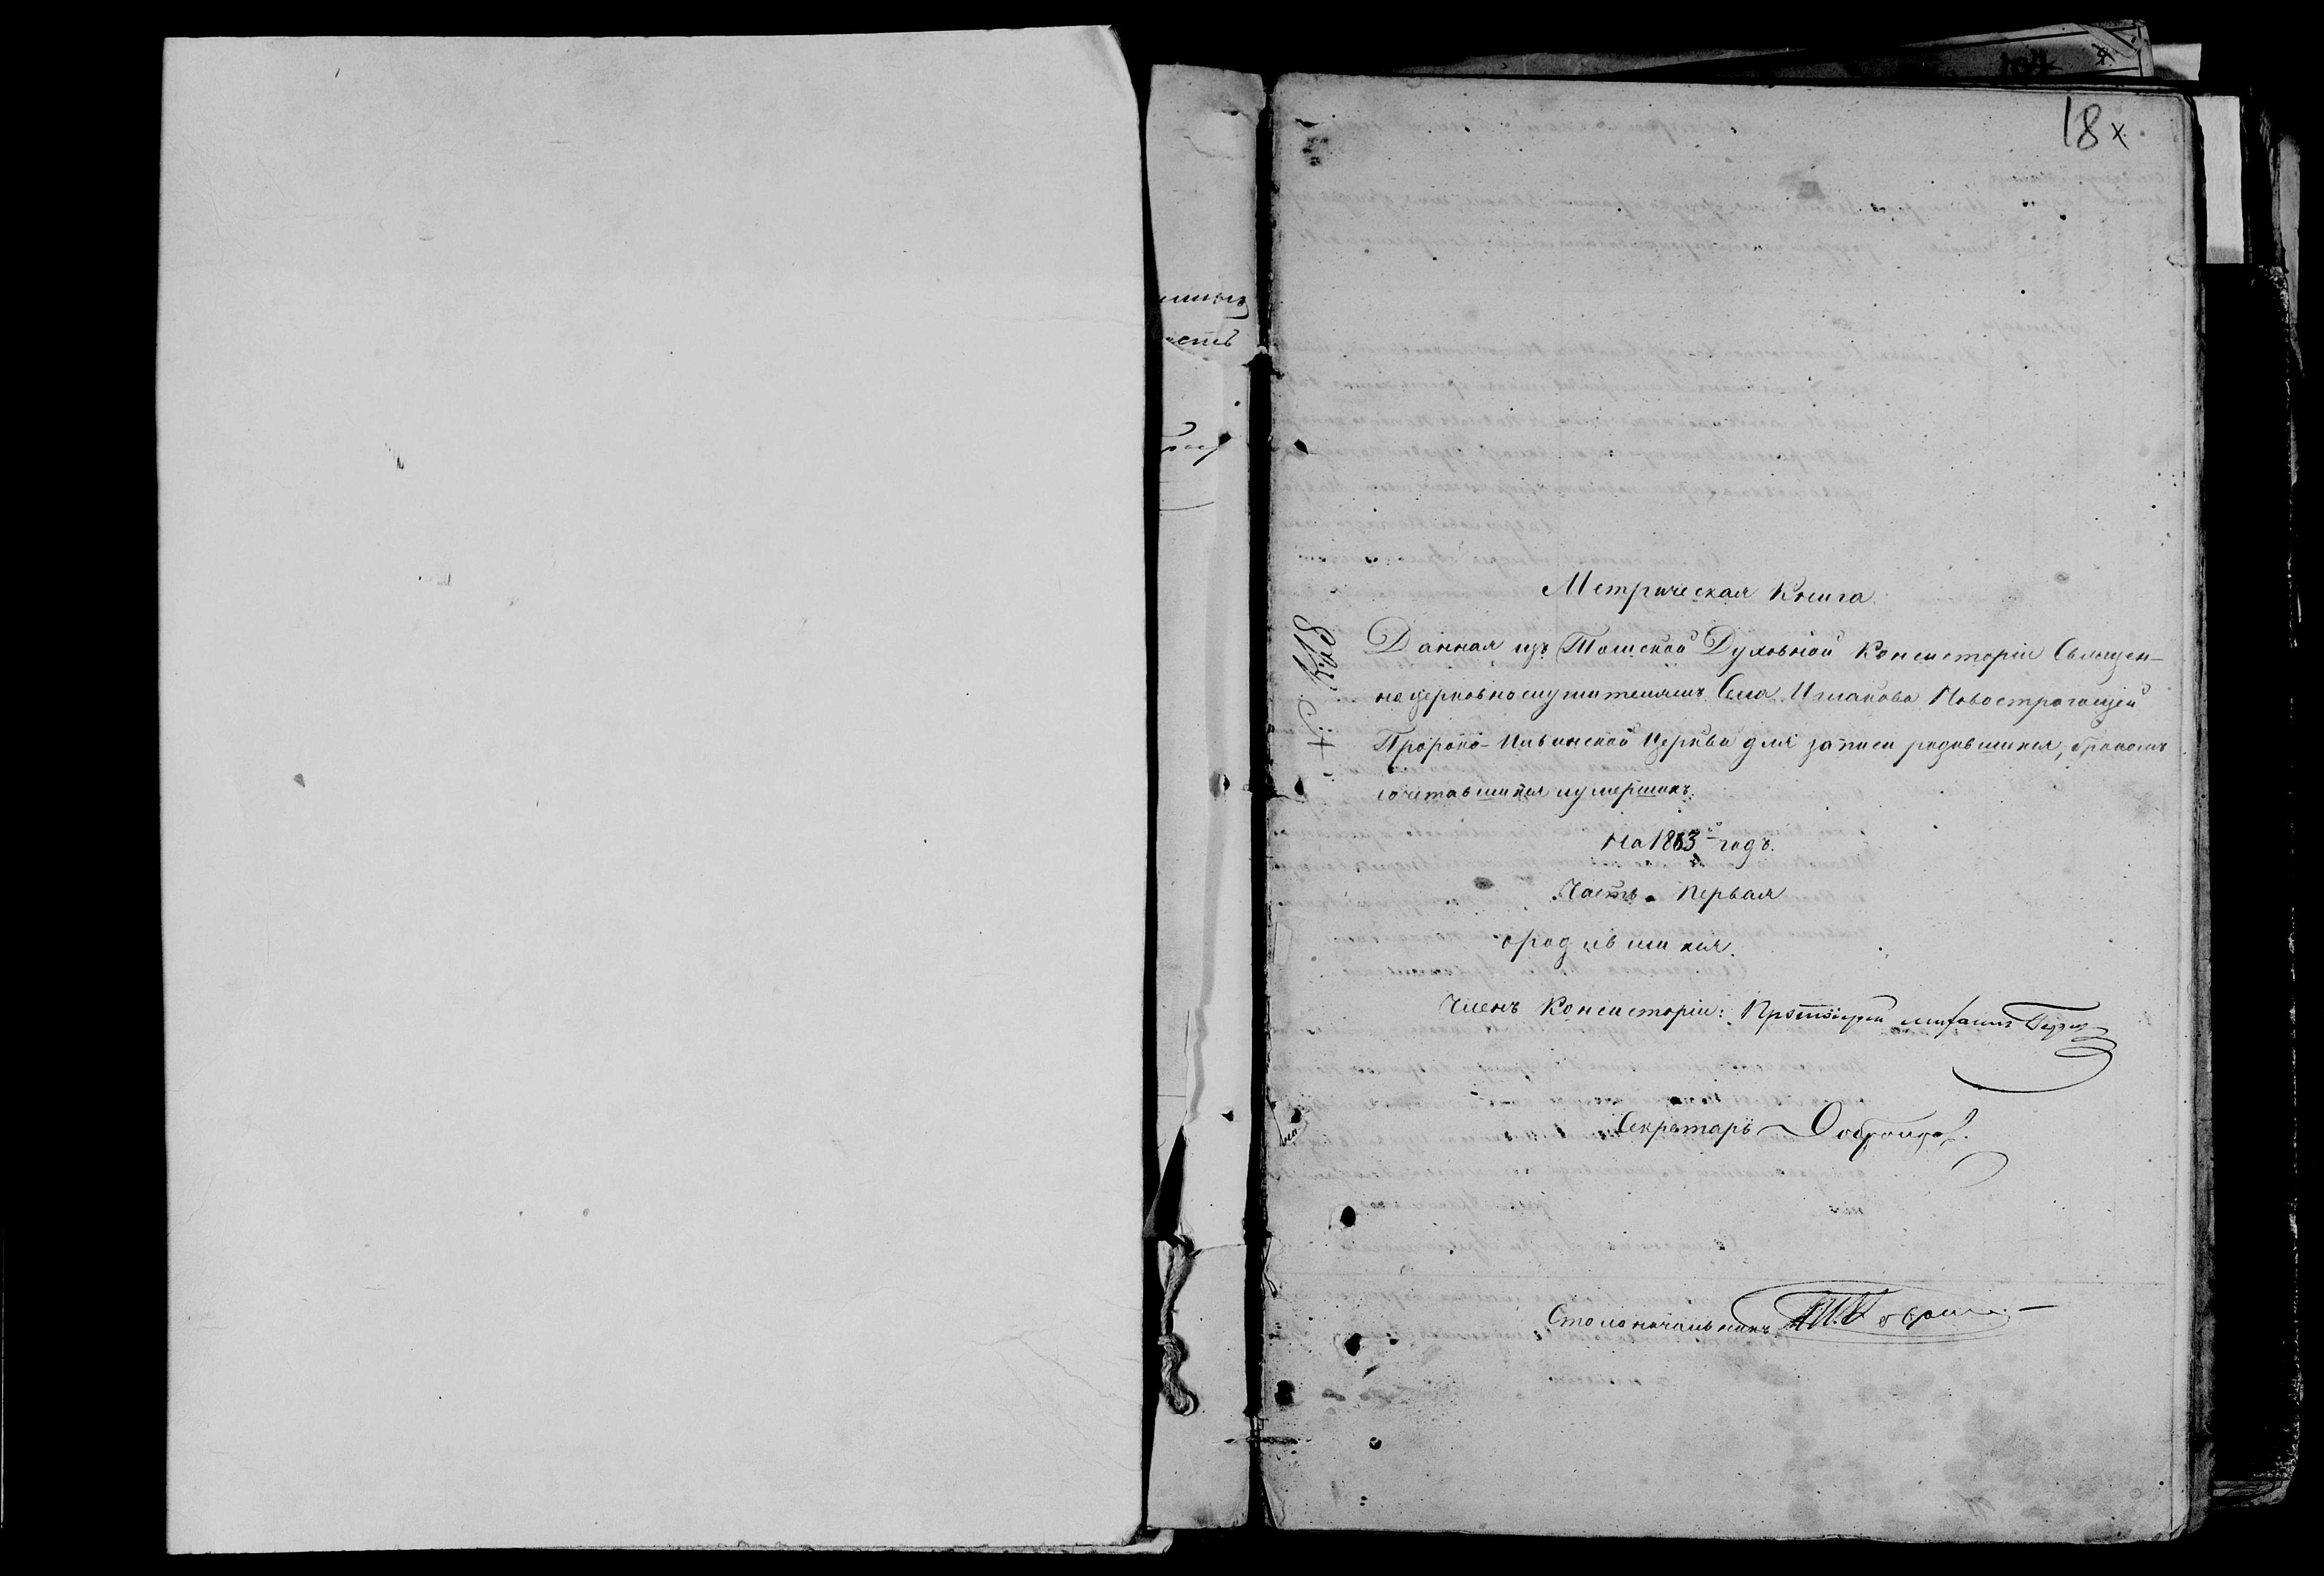 18 х
Метрическая Книга
Данная изъ Томской Духовной Консисторіи Священ-
но церковно служителямъ Села Ишакова Новостроющей
Пророко-Ильинской Церкви для записи родившихся, бракомъ
сочетавшихся и умершихъ.
На 1863й годъ.
Часть Первая
о родившихся.
Членъ Консисторіи: Протоіерей
Секретарь
Столоначальникъ